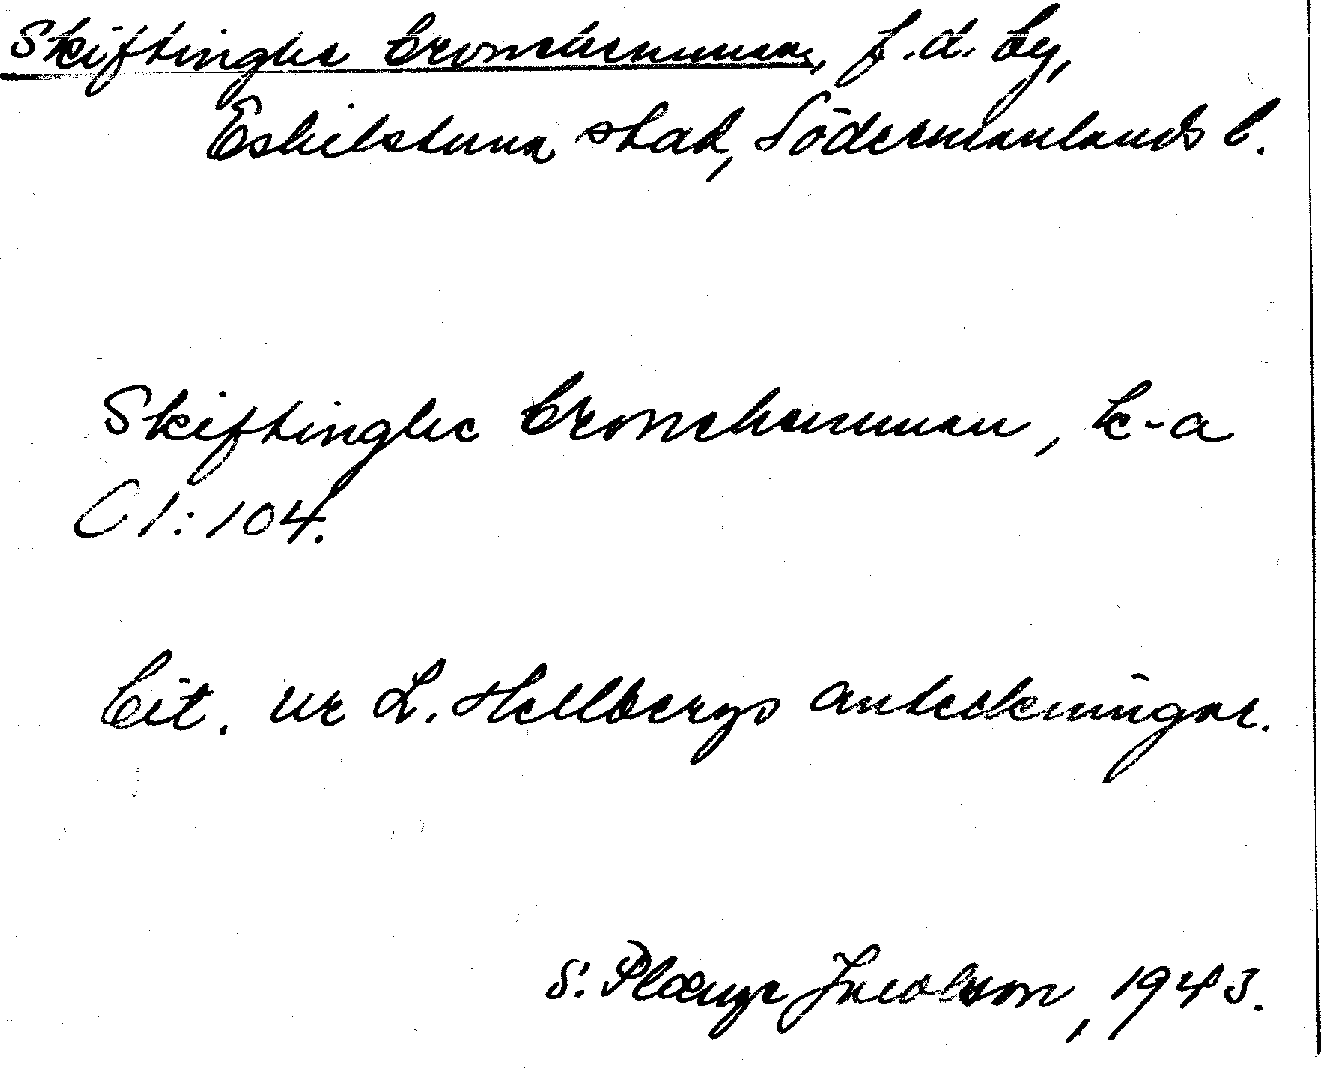 Skiftinghe Cronehemman, f.d. by,
Eskilstuna stad, Södermanlands l.
Skiftinghe Cronehemman, k-a
C 1:104.
Cit. ur L. Hellbergs anteckningar.
S. Plænge Jacobson, 1943.